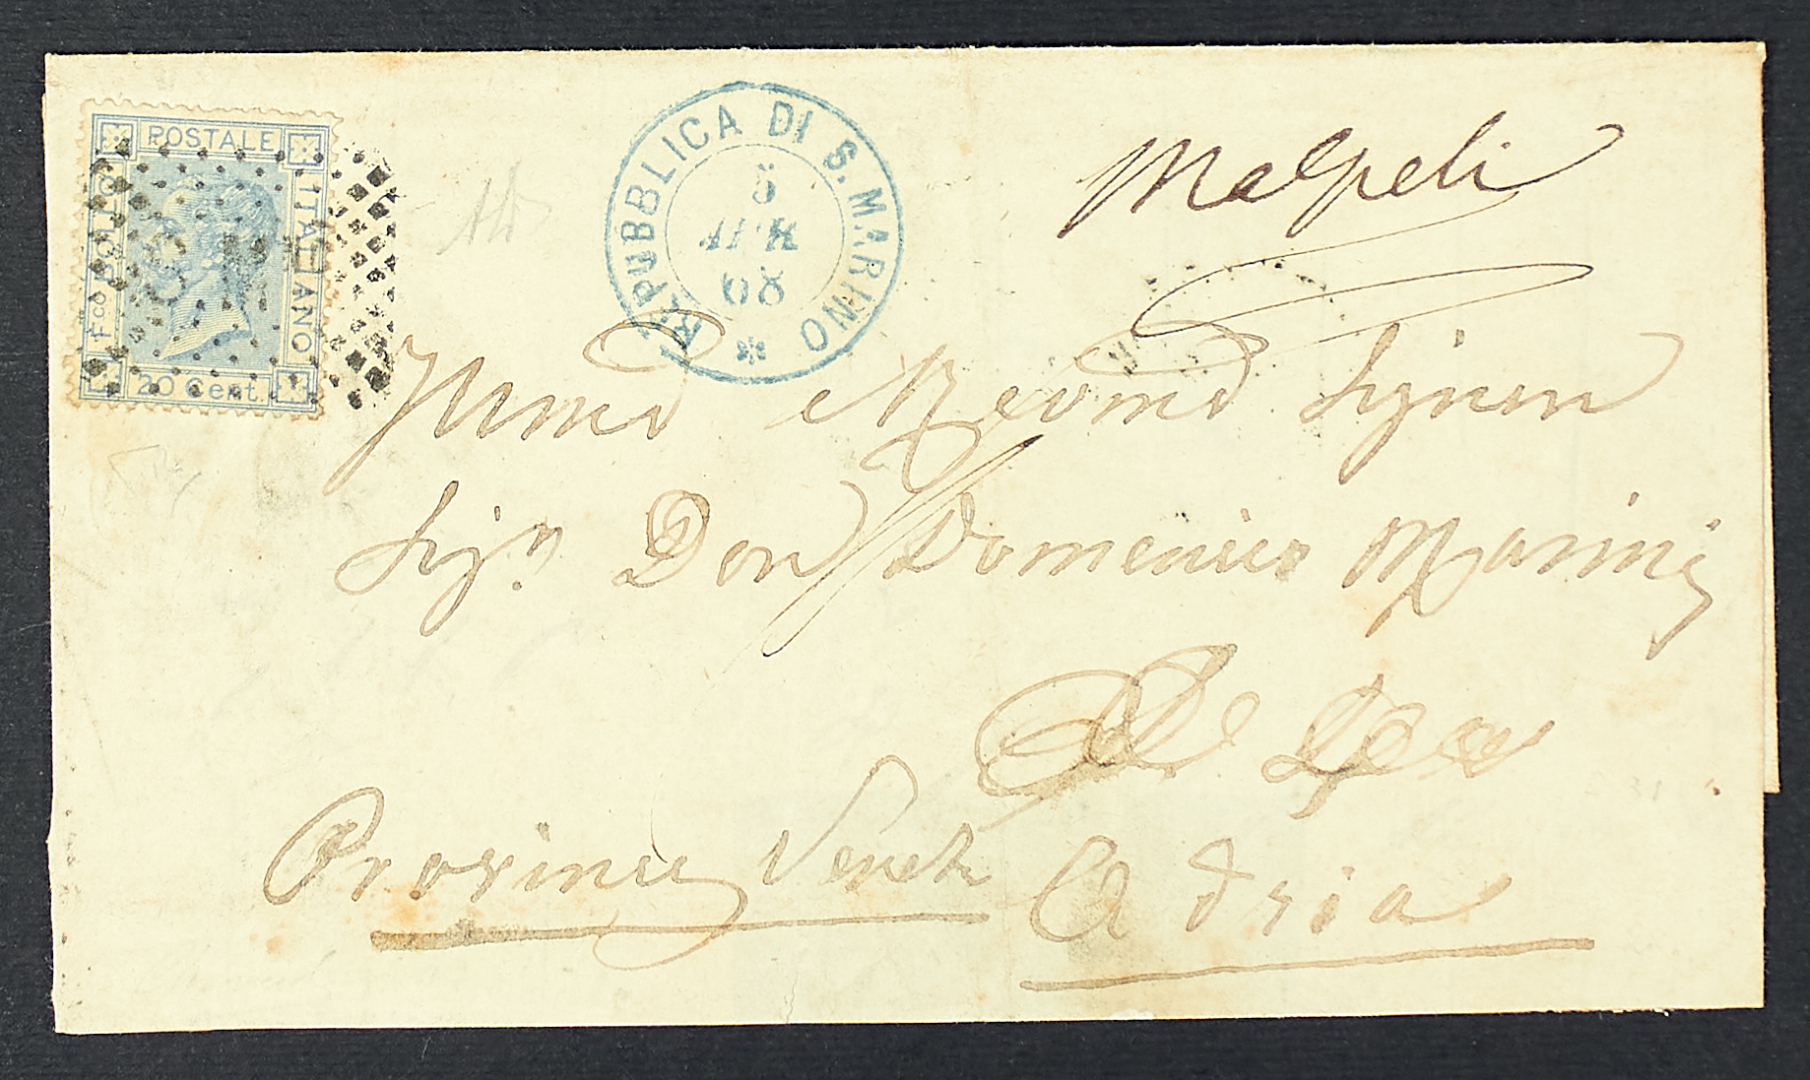 POSTALE
ITALIANO
FCO BOLLO
20 Cent.
REPUBBLICA DI S. MARINO
5
APR
68
Malpeli
Illmo e Revmo Signor
Sigr Don Domenico Marini
Provincie Venete Adria